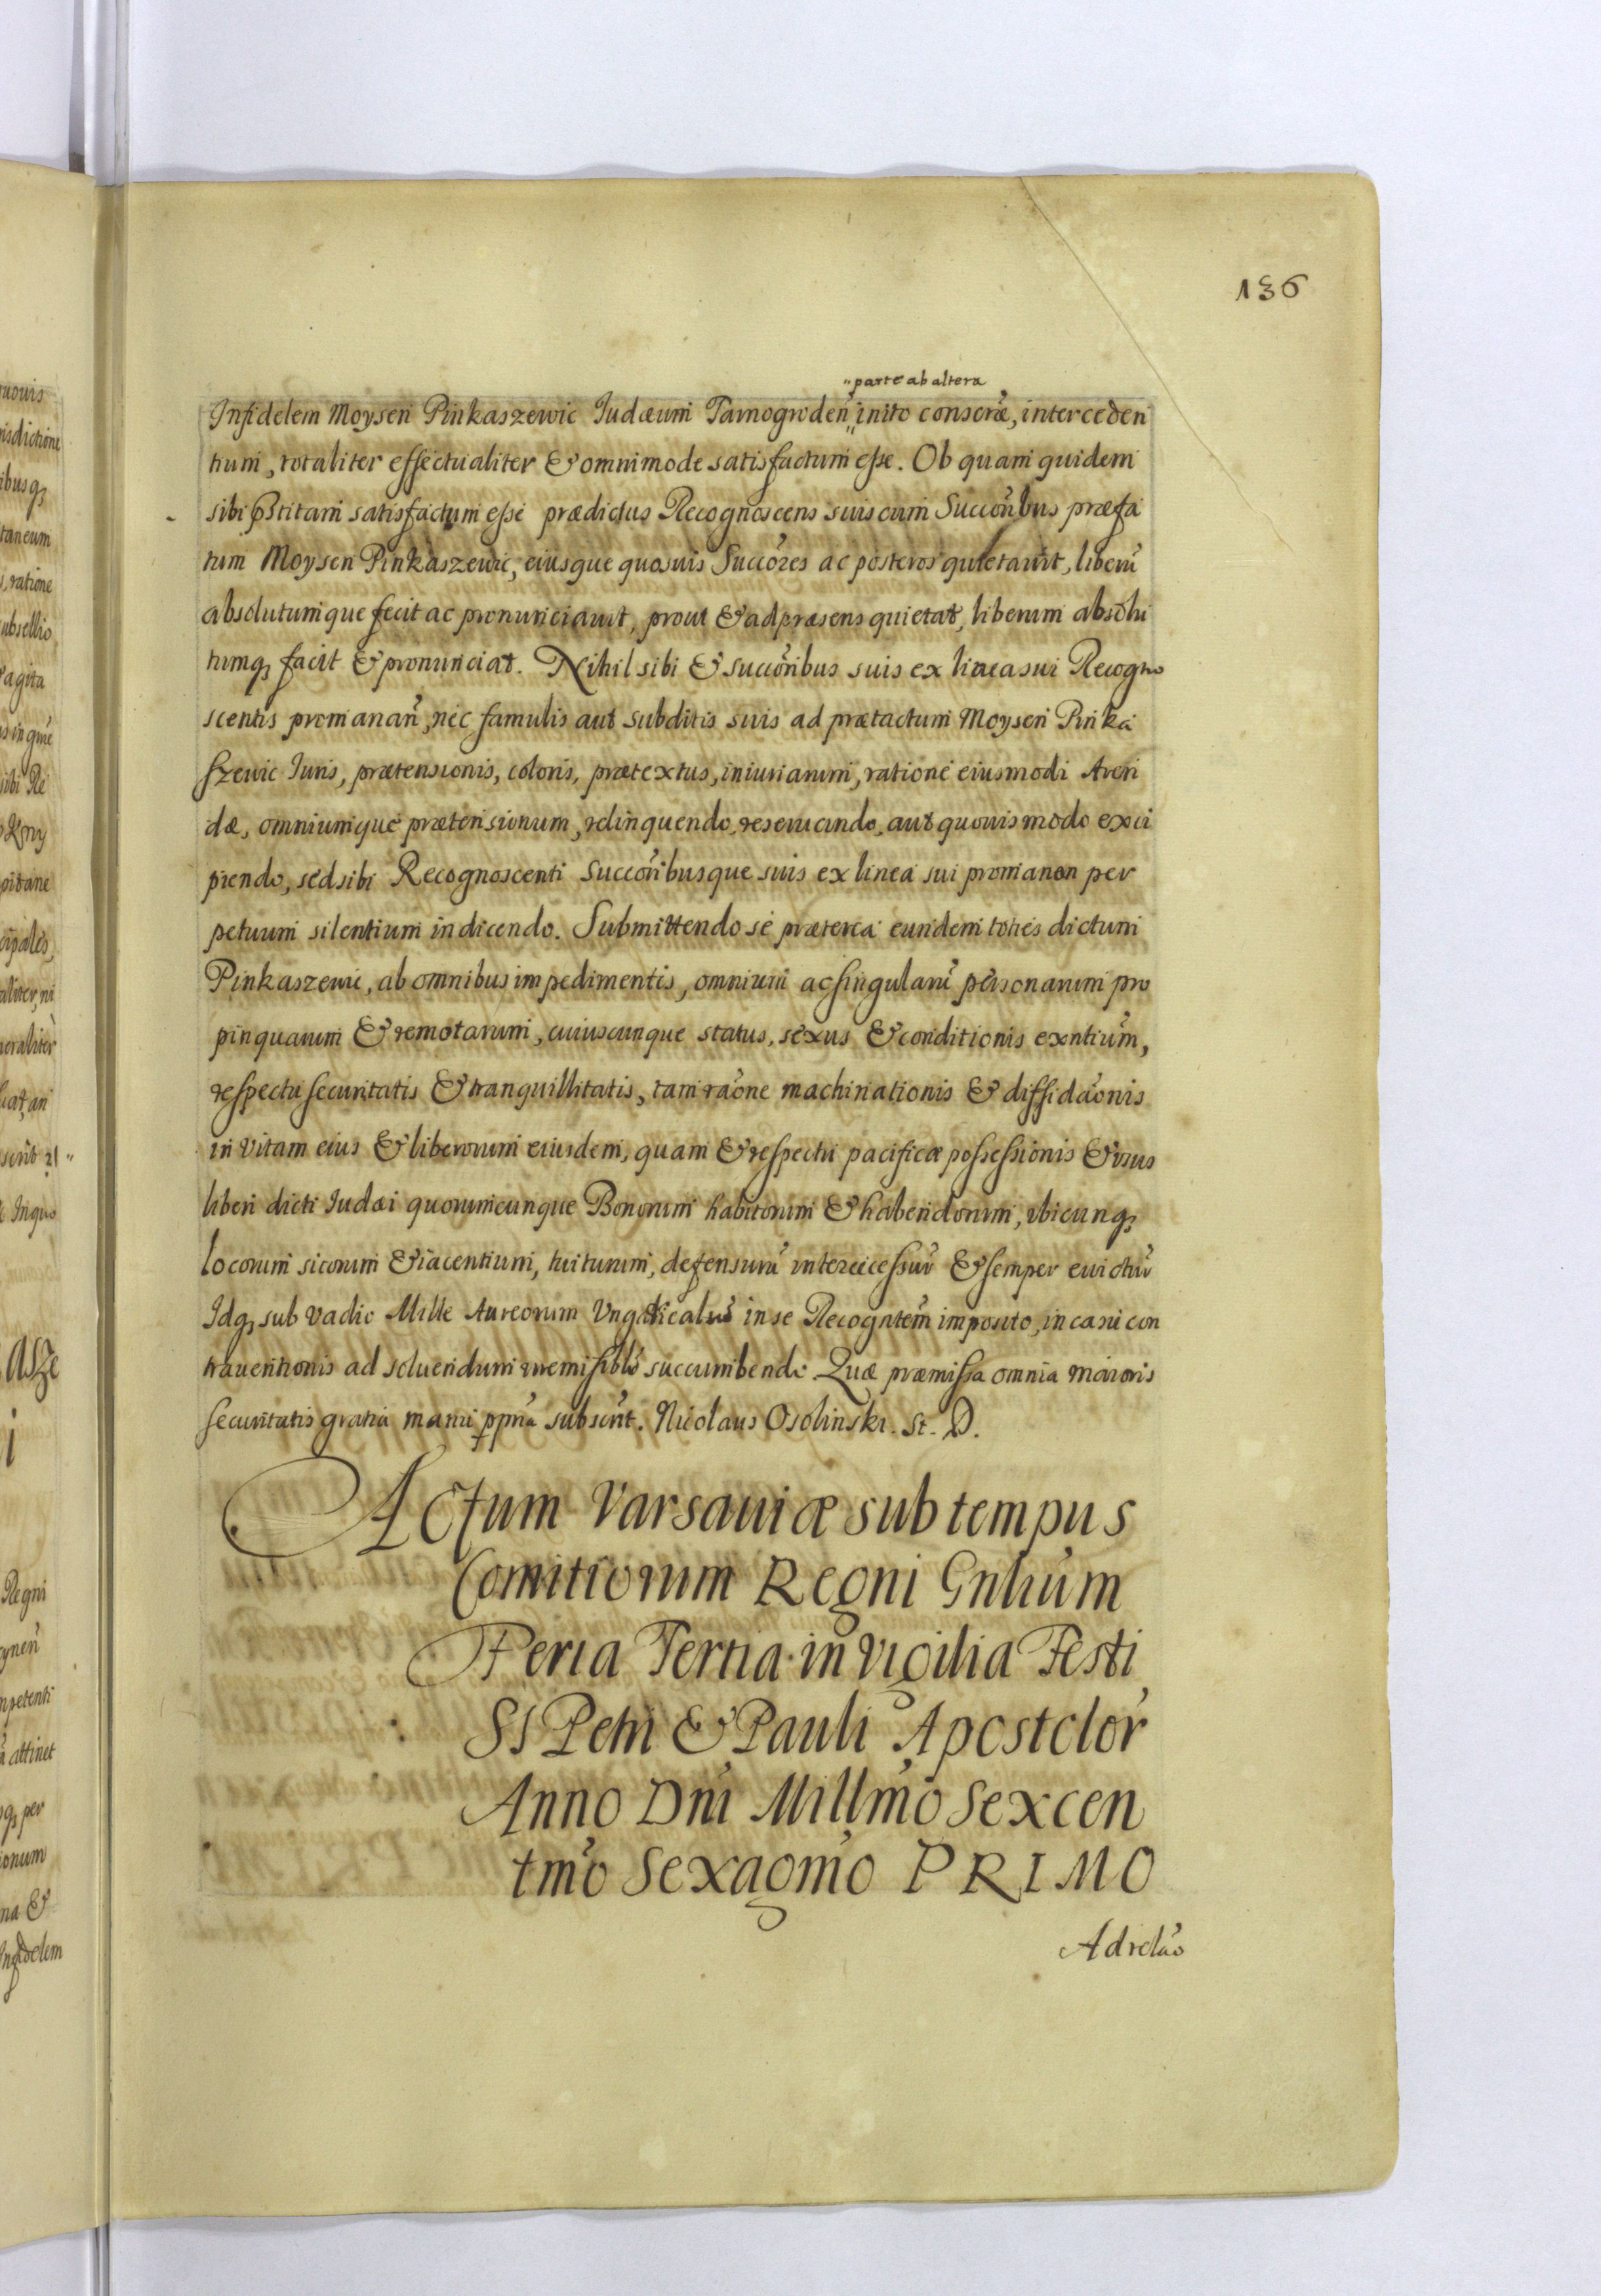 136
"parte ab altera
Infidelem Moysen Pinkaszewic Iudæum Tarnogroden̄ inito conscriæ, interceden
tium, totaliter effectualiter & omnimode satisfactum esse. Ob quam quidem
sibi prstitam satisfactum esse prædictus Recognoscens suis cum Succoribus præfa
tum Moysen Pinkaszewic, eiusque quosuis Succōres ac posteros quietauit, liberū
absolutumque fecit ac pronunciauit, prout & ad præsens quietat, liberum absolu
tumq3 facit & pronunciat. Nihil sibi & succoribus suis ex linea sui Recogno
scentis promanan̄, nec famulis aut subditis suis ad prætactum Moysen Pinka
szewic Iuris, prætensionis, coloris, prætextus, iniuriarum, ratione eiusmodi Aren
dæ, omniumque prætensionum, relinquendo, reseruando, aut quouis modo exci
piendo, sed sibi Recognoscenti Succoribusque suis ex linea sui promanan per
petuum silentium indicendo. Submittendo se præterea eundem toties dictum
Pinkaszewic, ab omnibus impedimentis, omnium ac singularū personarum pro
pinquarum & remotarum, cuiuscunque status, sexus & conditionis exntium,
respectu securitatis & tranquillitatis, tam raōne machinationis & diffidaōnis
in vitam eius & liberorum eiusdem, quam & respectu pacificæ possessionis & usus
liberi dicti Iudæi quorumcunque Bonorum habitorum & habendorum, vbicunq3
locorum sitorum & iacentium, tuiturum, defensurū intercessurū & semper euicturū
Idq3 sub vadio Mille Aureorum Vngaricaliū in se Recogntem imposito, in casu con
trauentionis ad soluendum irremisiblr succumbendi. Quæ præmissa omnia maioris
securitatis gratia manu ppria subscrit. Nicolaus Osolinski. St. D.
Actum Varsauiæ sub tempus
Comitiorum Regni Gnlium
Feria Tertia in Vigilia Festi
SS Petri & Pauli Apostolor
Anno Dni Millmo Sexcen
tmo Sexagmo PRIMO
Ad relao